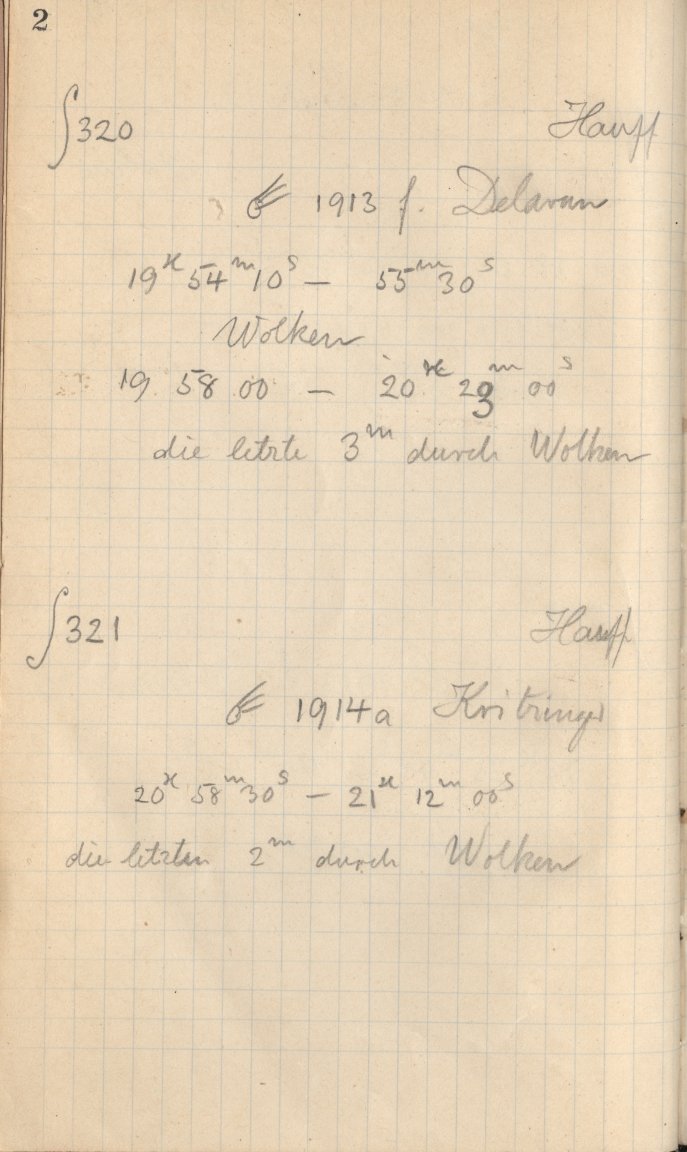 2
∫320 Hauff
☄ 1913 f. Delavan
19ʰ 54ᵐ 10ˢ — 55ᵐ 30ˢ
Wolken
19 58 00 — 20ʰ 23ᵐ 00ˢ
die letzte 3ᵐ durch Wolken
∫321 Hauff
☄ 1914a Kritzinger
20ʰ 58ᵐ 30ˢ — 21ʰ 12ᵐ 00ˢ
die letzten 2ᵐ durch Wolken